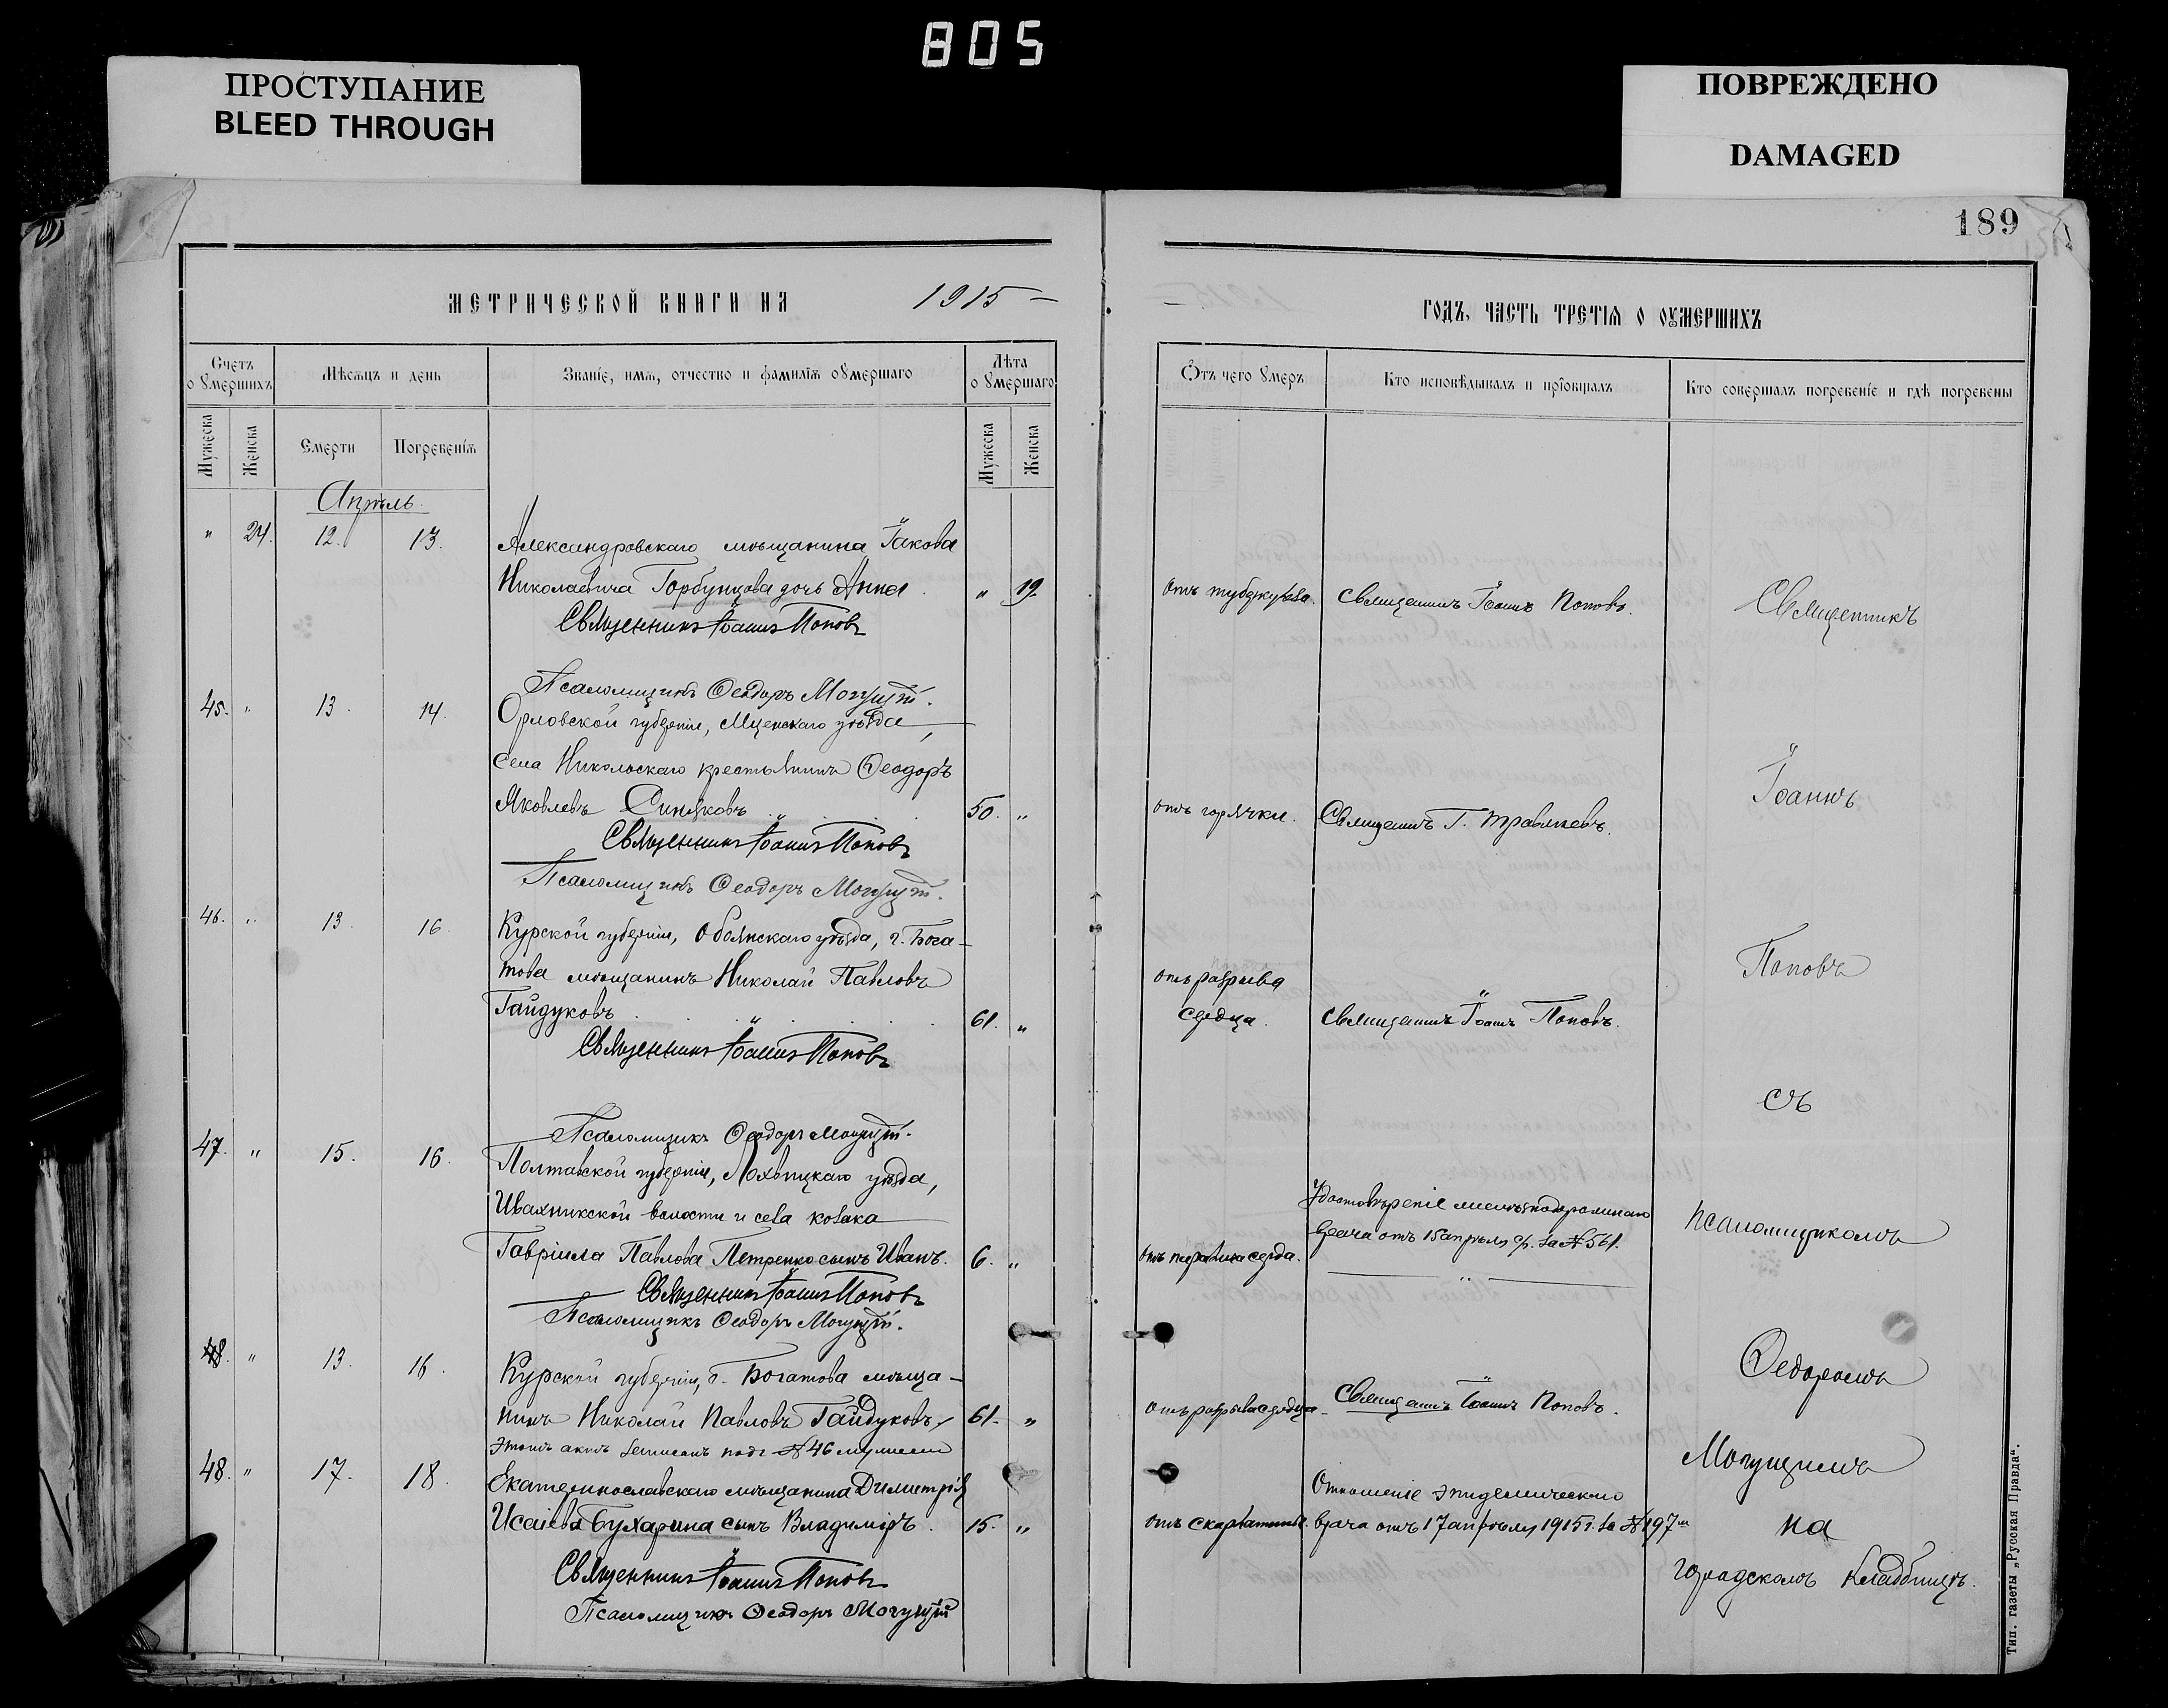 805
ПРОСТУПАНИЕ
BLEED THROUGH
ПОВРЕЖДЕНО
DAMAGED
189
МЕТРИЧЕСКОЙ КНИГИ НА 1915
Счетъ о ꙋмершихъ
Мѣсѧцъ и день
Званіе, имѧ, отчество и фамиліѧ оумершаго
Лѣта оумершаго
Мужеска
Женска
Смерти
Погребеніѧ
Мужеска
Женска
Апрѣль.
" 24. 12. 13.
Александровскаго мѣщанина Іакова
Николаевича Горбунцова дочь Анна " 19.
Священникъ Іоаннъ Поповъ
Псаломщикъ Ѳеодоръ Могущій.
45. " 13. 14.
Орловской губерніи, Мценскаго уѣзда,
села Никольскаго крестьянинъ Ѳеодоръ
Яковлевъ Синяковъ 50. "
Священникъ Іоаннъ Поповъ
Псаломщикъ Ѳеодоръ Могущій.
46. " 13. 16.
Курской губерніи, Обоянскаго уѣзда, г. Бога-
това мѣщанинъ Николай Павловъ
Гайдуковъ 61. "
Священникъ Іоаннъ Поповъ
Псаломщикъ Ѳеодоръ Могущій.
47. " 15. 16.
Полтавской губерніи, Лохвицкаго уѣзда,
Ивахникской волости и села козака
Гавріила Павлова Петренко сынъ Иванъ. 6. "
Священникъ Іоаннъ Поповъ
Псаломщикъ Ѳеодоръ Могущій.
48. " 13. 16.
Курской губерніи, г. Богатова мѣща-
нинъ Николай Павловъ Гайдуковъ, 61. "
Этотъ актъ записанъ подъ № 46
48. " 17. 18.
Екатеринославскаго мѣщанина Димитрія
Исаіева Бухарина сынъ Владиміръ. 15. "
Священникъ Іоаннъ Поповъ
Псаломщикъ Ѳеодоръ Могущій
ГОДЪ, ЧАСТЬ ТРЕТІѦ О ОУМЕРШИХЪ
Ѿтъ чего ꙋмеръ
Кто исповѣдывалъ и прїовщалъ
Кто совершалъ погребеніе и гдѣ погребены
Отъ туберкулеза. Священникъ Іоаннъ Поповъ.
отъ горячки. Священникъ Г. Травлевъ.
отъ разрыва
сердца. Священникъ Іоаннъ Поповъ.
Удостовѣреніе
врача отъ 15 апрѣля с/г. за № 561.
отъ паралича сердца.
отъ разрыва сердца. Священникъ Іоаннъ Поповъ.
Отношеніе эпидемическаго
отъ скарлатины. врача отъ 17 апрѣля 1915 г. за № 197
Священникъ
Іоаннъ
Поповъ
съ
псаломщикомъ
Ѳедоромъ
Могущимъ
на
городскомъ кладбищѣ.
Тип. газеты „Русская Правда“.